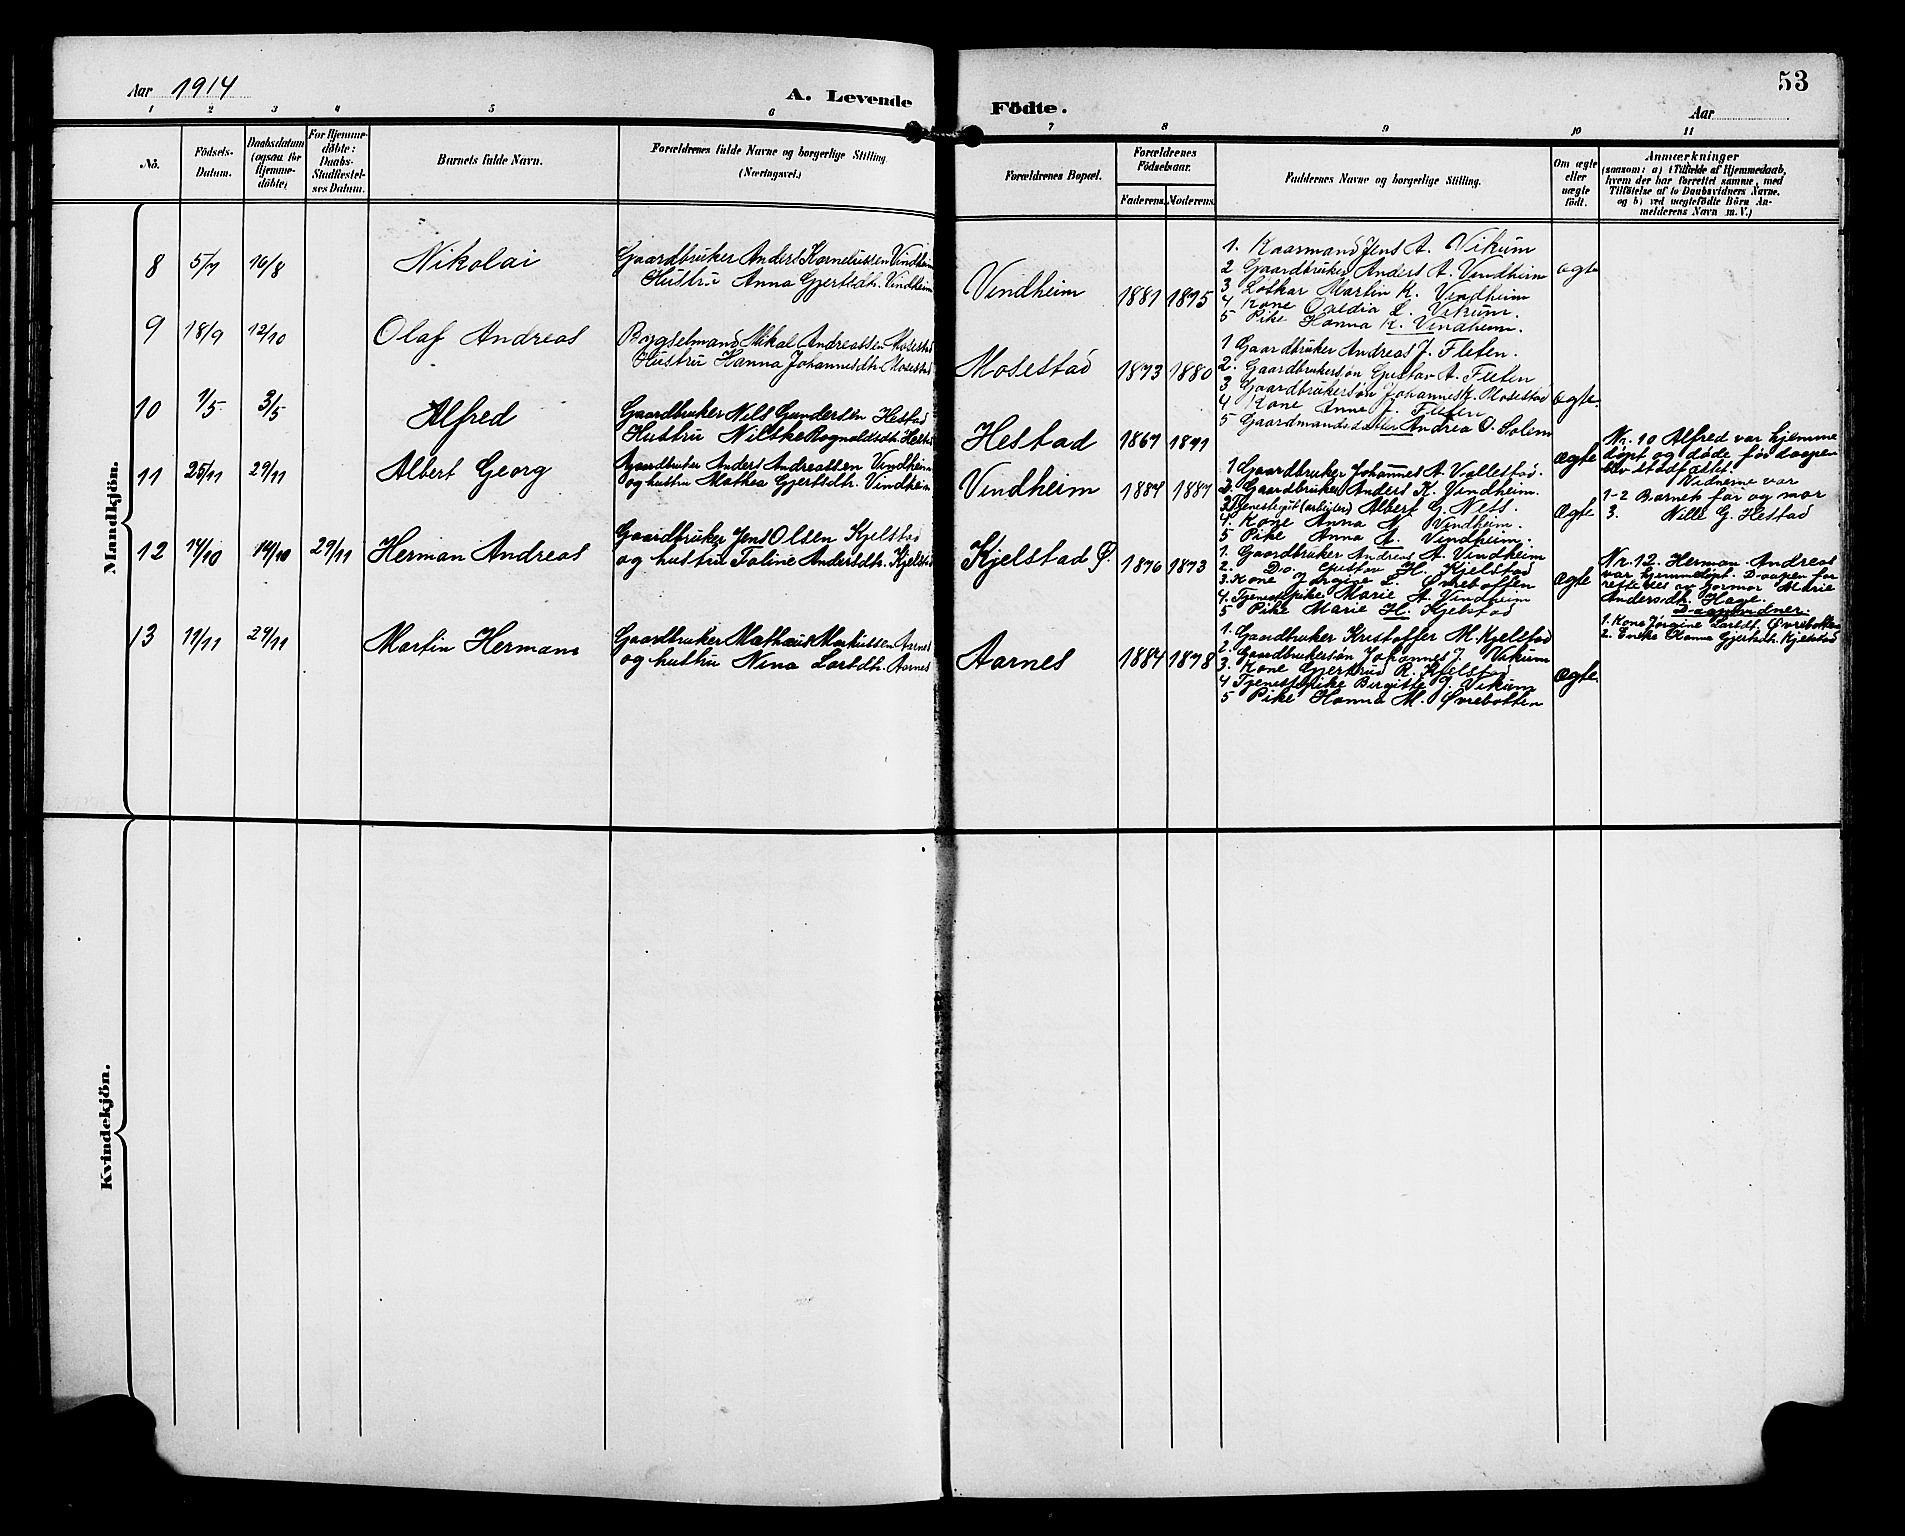 53
Aar 1914
A. Levende Födte.
Aar
1 2 3 4 5 6 7 8 9 10 11
Nô. | Födsels-Datum. | Daabsdatum (ogsaa for Hjemme-döbte) | For Hjemme-döbte: Daabs-Stadfæstel-ses Datum. | Barnets fulde Navn. | Forældrenes fulde Navne og borgerlige Stilling (Næringsvei.) | Forældrenes Bopæl. | Forældrenes Födselsaar. Faderens. Moderens. | Faddernes Navne og borgerlige Stilling. | Om ægte eller uægte födt. | Anmærkninger (saasom: a) i Tilfælde af Hjemmedaab, hvem der har forrettet samme, med Tilföielse af to Daabsvidners Navne, og b) ved uægtefödte Börn An-melderens Navn m. V.)
Mandkjön.
8 5/7 16/8 Nikolai
Gaardbruker Anders Kornelius​sen Vindheim
Hustru Anna Gjertsdtr. Vindheim
Vindheim 1881 1875
1. Kaarmand Jens A. Vikum
2 Gaardbruker Anders A. Vindheim
3 Loskar Martin K. Vindheim
4 Kone L. Vikum.
5 Pike Hanna K. Vindheim.
ægte
9 18/9 12/10 Olaf Andreas
Bygselmand Mikal Andreassen Mosestad
Hustru Hanna Johannesdtr. Mosestad
Mosestad 1873 1880
1 Gaardbruker Andreas J. Fleten.
2. Gaardbrukersøn Gustav A. Fleten
3 Gaardbrukersøn Johannes K. Mosestad
4 Kone Anne J. Fleten
5 Gaardmandsdatter Andrea O. Solem
ægte.
10 1/5 3/5 Alfred
Gaardbruker Nils Gundersen Hestad
Hustru Nilske Rognaldsdtr. Hestad
Hestad 1867 1871
ægte
Nr. 10 Alfred var hjemme
døpt og døde før daapen
blev stadfæstet.
Vidnerne var
1-2 Barnets far og mor
3. Nille G. Hestad
11 25/11 29/11 Albert Georg
Gaardbruker Anders Andreassen Vindheim
og hustru Mathea Gjertsdtr. Vindheim
Vindheim 1884 1887
1 Gaardbruker Johannes A. Vallestad.
2. Gaardbruker Anders K. Vindheim.
3 Tjenestegut (arbeider) Albert G. Ness.
4. Kone Anna N. Vindheim.
5 Pike Anna A. Vindheim.
ægte
12 14/10 14/10 29/11 Herman Andreas
Gaardbruker Jens Olsen Kjelstad
og hustru Taline Andersdtr. Kjelstad
Kjelstad Ø. 1870 1873
1. Gaardbruker Andreas A. Vindheim
2. Do. Gustav H. Kjelstad
3. Kone Jørgine L. Øvrebotten
4. Tjenestepike Marie A. Vindheim
5 Pike Marie H. Kjelstad
ægte
Nr. 12. Herman Andreas
var hjemmedøpt. Daapen for
rettedes av Jormor Marie
Andersdtr. Hage.
Daapsvidner.
1. Kone Jørgine Larsdt. Øvrebotten
2. Enke Hanna Gjertsdt. Kjelstad
13 11/11 29/11 Martin Herman
Gaardbruker Mathæus Markussen Aarnes
og hustru Nina Larsdtr. Aarnes
Aarnes 1884 1878
1. Gaardbruker Kristoffer M. Kjelstad
2. Gaardbrukersøn Johannes J. Vikum
3. Kone Gjertrud R. Kjelstad
4 Tjenestepike Birgitte J. Vikum
5 Pike Hanna M. Øvrebotten
ægte.
Kvindekjön.